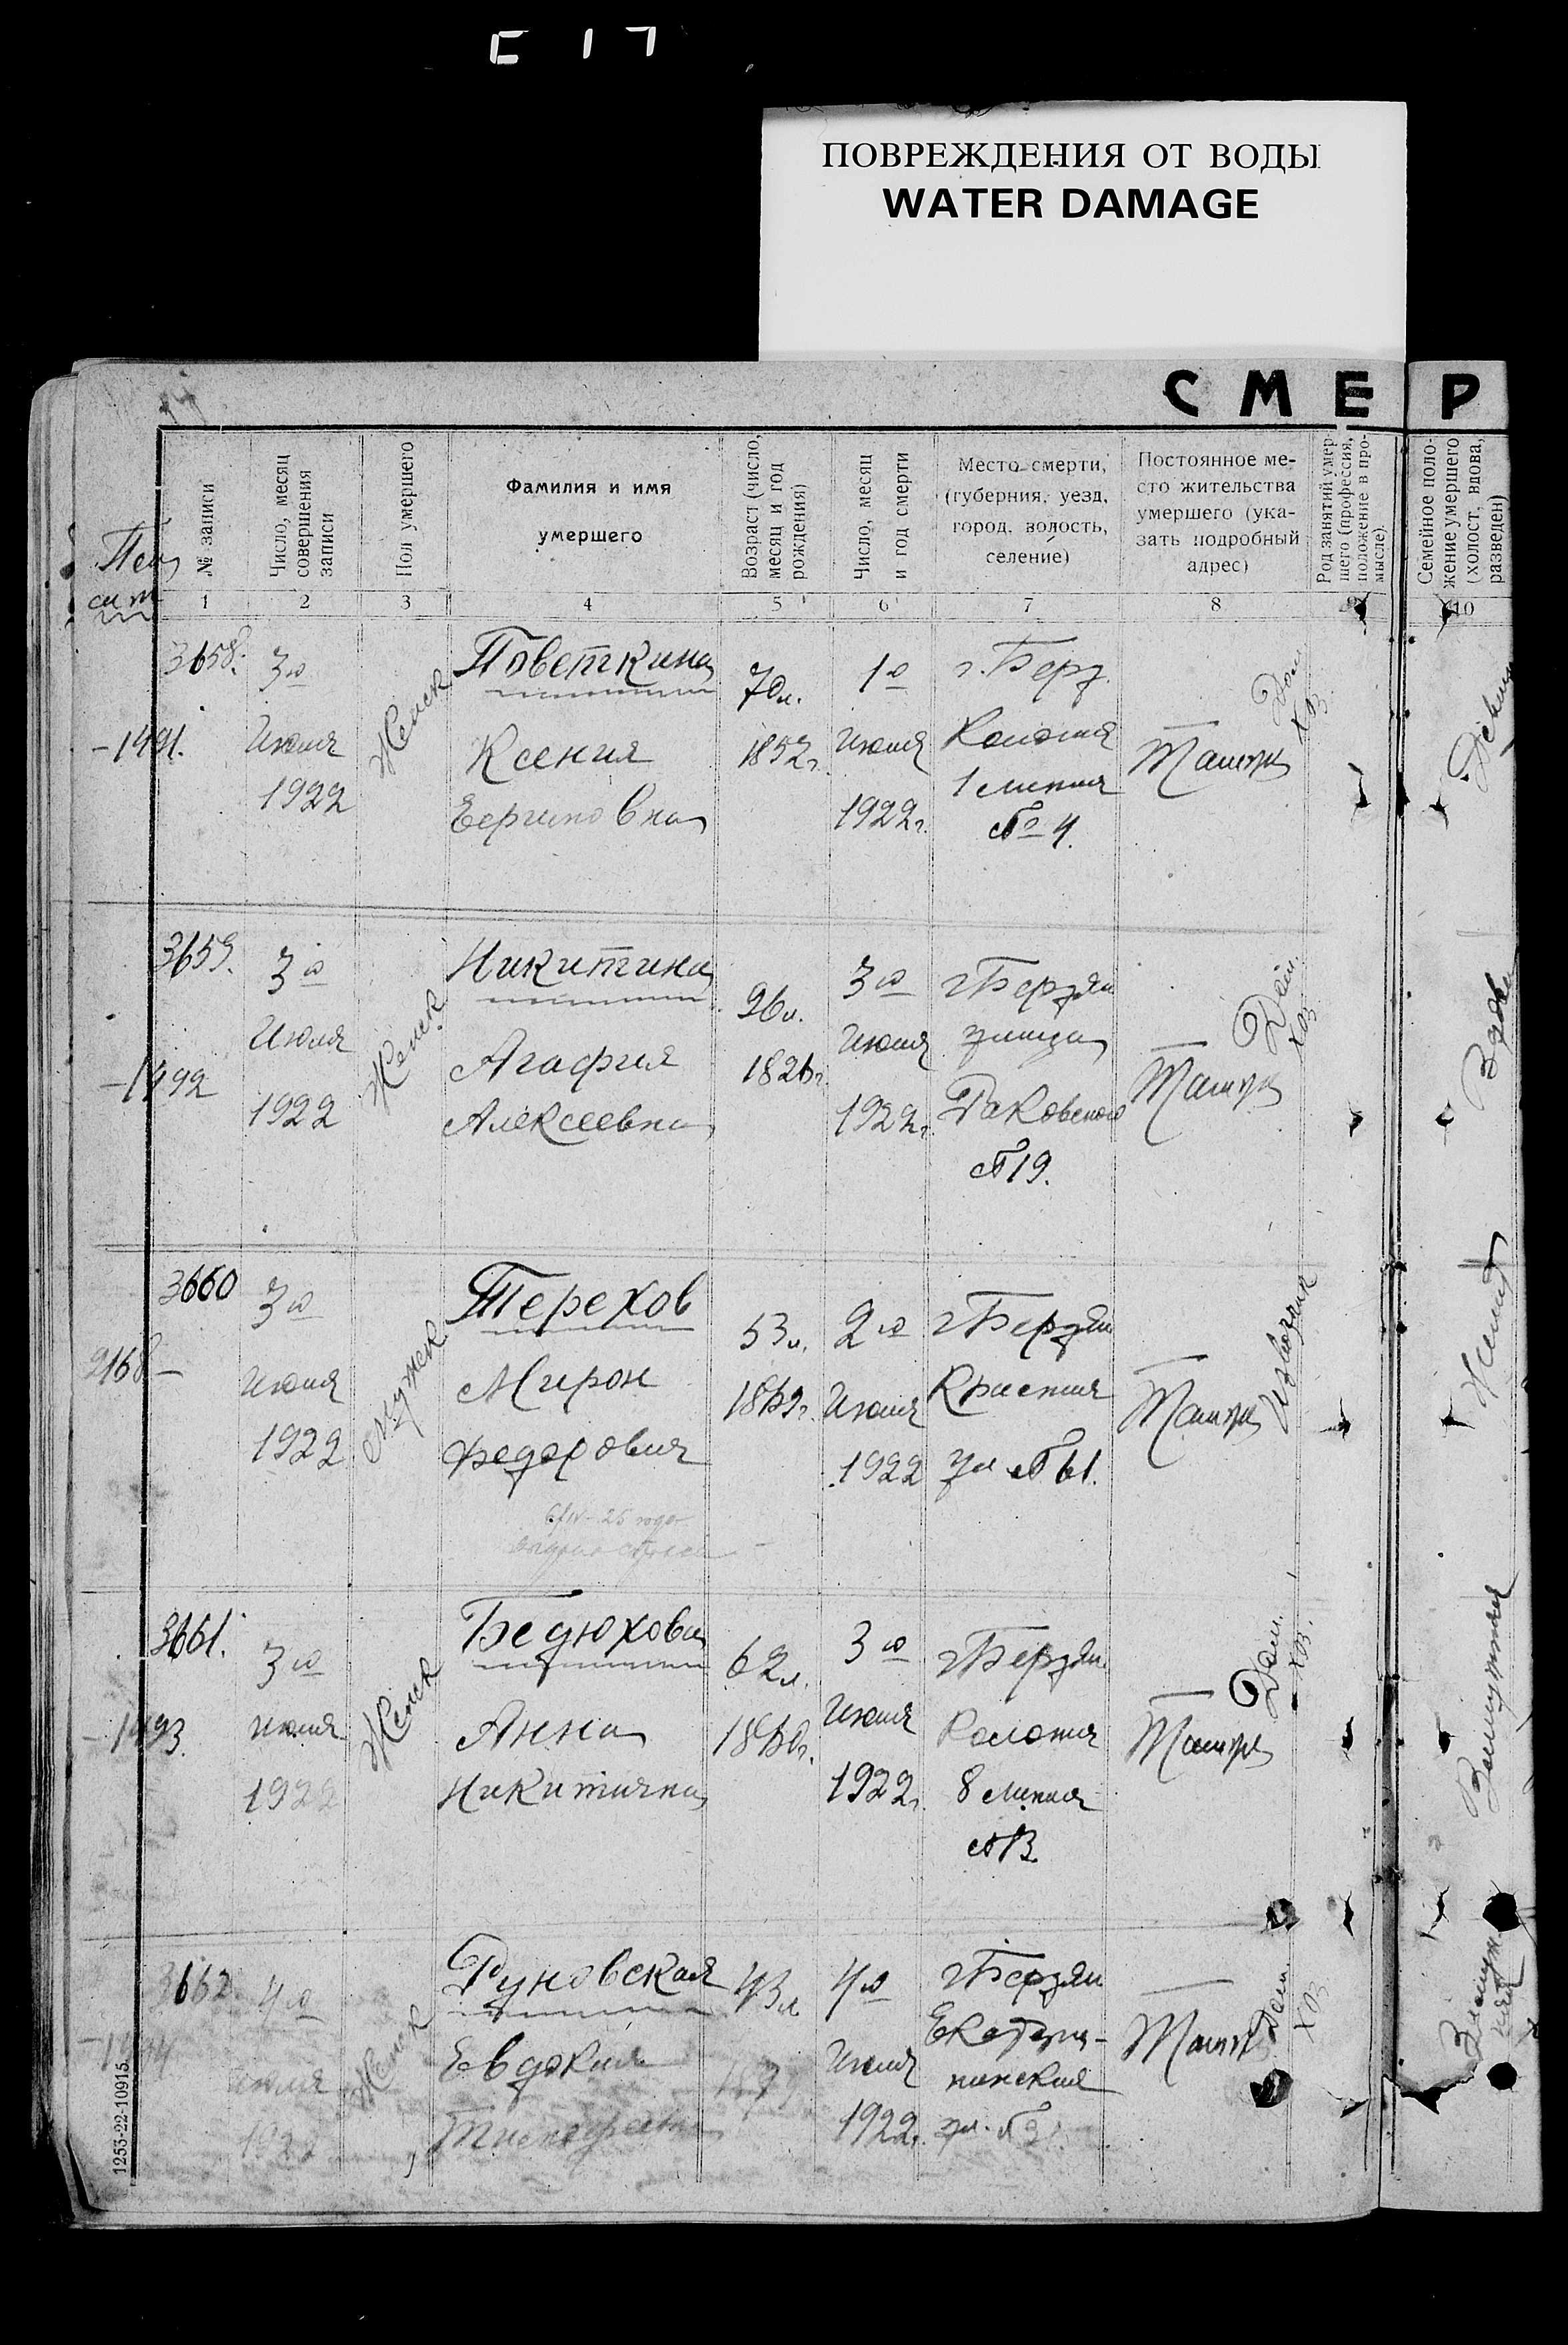 ПОВРЕЖДЕНИЯ ОТ ВОДЫ
WATER DAMAGE
С М Е Р
№ записи
Число, месяц совершения записи
Пол умершего
Фамилия и имя умершего
Возраст (число, месяц и год рождения)
Число, месяц и год смерти
Место смерти, (губерния, уезд, город, волость, селение)
Постоянное место жительства умершего (указать подробный адрес)
Род занятий умершего (профессия, положение в промысле).
Семейное положение умершего (холост, вдова, разведен)
1 2 3 4 5 6 7 8 10
3658.
-1491.
3го
Июля
1922
Женск
Поветкина
Ксения
70 л.
1852 г.
1го
Июля
1922 г.
г. Берд.
Колония
1 линия
№ 4.
Дом.
хоз.
3659.
-1492
3го
Июля
1922
Женск
Никитина
Агафия
Алексеевна
96 л.
1826 г.
3го
Июля
1922 г.
г Бердян
улица
Раковского
№ 19.
Дом.
хоз
Вдова
3660
2168-
3го
Июля
1922
Мужск
Терехов
Мирон
Федорович
53 л.
1869 г.
2го
Июля
1922
г Бердян
Красная
ул № 61.
Извозчик
Женат
3661.
-1493.
3го
Июля
1922
Женск
Бедюхова
Анна
Никитична
62 л.
1860 г.
3го
Июля
1922 г.
г Бердян.
Колония
8 линия
Дом.
хоз.
Замужняя
3662
4го
Июля
1922
Женск
Руновская
Евдокия
43 л
4го
Июля
1922 г.
г Бердян
Екатери-
нинская
ул.
Дом.
хоз
Замуж
няя
1253-22-10915.